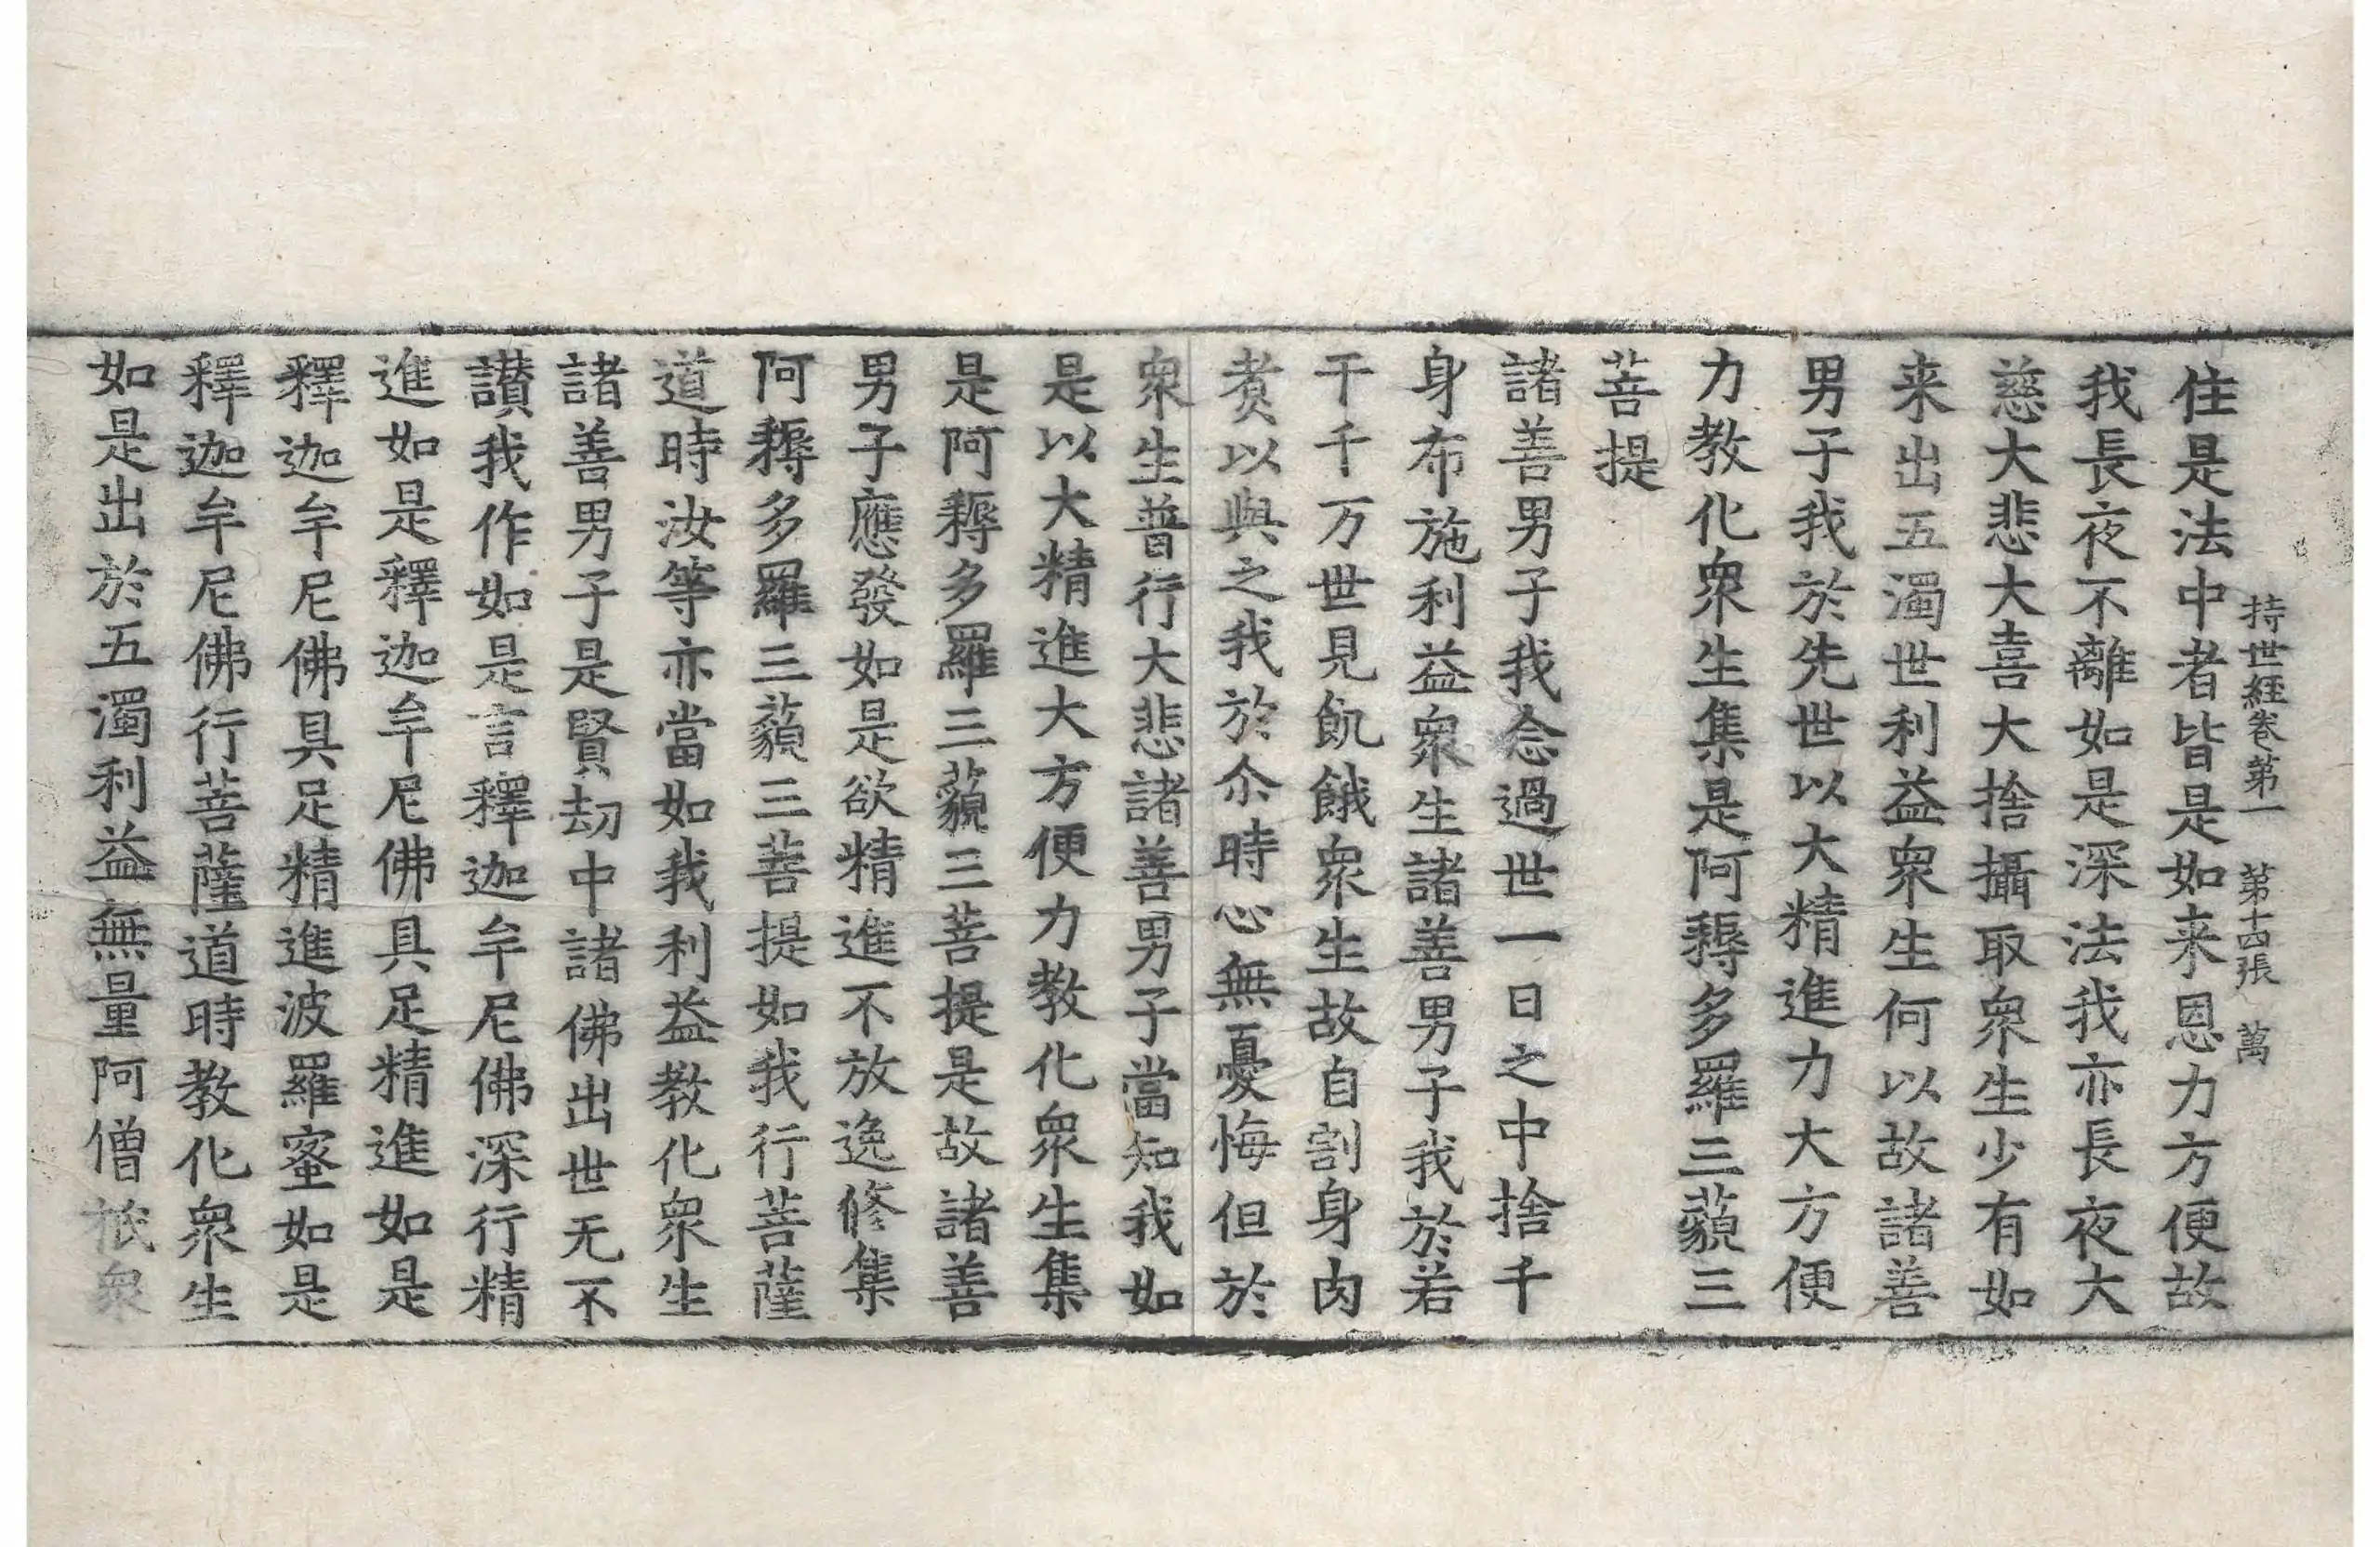 持世經卷第一　第十四張　萬
住是法中者皆是如来恩力方便故
我長夜不離如是深法我亦長夜大
慈大悲大喜大捨攝取衆生少有如
来出五濁世利益衆生何以故諸善
男子我於先世以大精進力大方便
力教化衆生集是阿耨多羅三藐三
菩提
諸善男子我念過世一日之中捨千
身布施利益衆生諸善男子我於若
干千万世見飢餓衆生故自割身肉
煑以與之我於尒時心無憂悔但於
衆生普行大悲諸善男子當知我如
是以大精進大方便力教化衆生集
是阿耨多羅三藐三菩提是故諸善
男子應發如是欲精進不放逸修集
阿耨多羅三藐三菩提如我行菩薩
道時汝等亦當如我利益教化衆生
諸善男子是賢劫中諸佛出世无不
讃我作如是言釋迦牟尼佛深行精
進如是釋迦牟尼佛具足精進如是
釋迦牟尼佛具足精進波羅蜜如是
釋迦牟尼佛行菩薩道時教化衆生
如是出於五濁利益無量阿僧祇衆